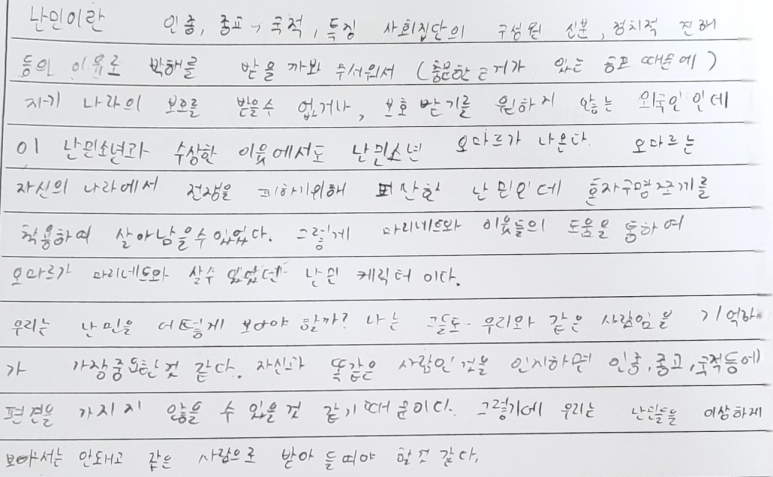 난민이란 인종, 종교, 국적, 특징 사회집단의 구성원 신분, 정치적 견해
등의 이유로 박해를 받을까봐 무서워서 (충분한 근거가 있는 공포 때문에)
자기 나라의 보호를 받을수 없거나, 보호받기를 원하지 않는 외국인인데
이 난민소년과 수상한 이웃에서도 난민소년 오마르가 나온다. 오마르는
자신의 나라에서 전쟁을 피하기위해 피난한 난민인데 혼자구명조끼를
착용하여 살아남을수있었다. 그렇게 마리네트와 이웃들의 도움을 통하여
오마르가 마리네트와 살수 있었던 난민 케릭터 이다.
우리는 난민을 어떻게 보아야 할까? 나는 그들도 우리와 같은 사람임을 기억하
가 가장중요한것 같다. 자신과 똑같은 사람인것을 인지하면 인종, 종교, 국적등에
편견을 가지지 않을 수 있을것 같기때문이다. 그렇기에 우리는 난민들을 이상하게
보아서는 안돼고 같은 사람으로 받아 들여야 할것 같다.